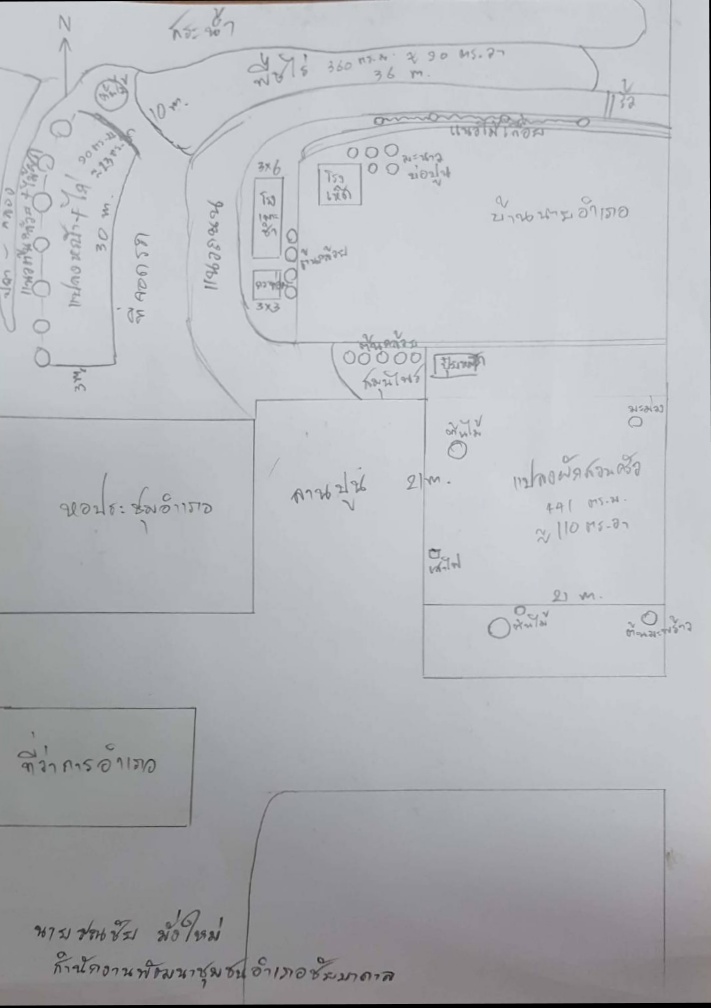 สระน้ำ
N
พืชไร่ 360 ตร.ม. ≈ 90 ตร.วา
36 m.
10 m.
รั้ว
แนวไม้เลื้อย
มะนาว
บ่อปูน
3x6
โรงเห็ด
บ้านนายอำเภอ
แนวถนน
ต้นกล้วย
3x3
ที่จอดรถ
30 m.
3 m.
ต้นกล้วย
สมุนไพร
ปุ๋ยหมัก
มะม่วง
ต้นไม้
แปลงผักสวนครัว
441 ตร.ม.
≈ 110 ตร.วา
21 m.
ลานปูน
หอประชุมอำเภอ
เสาไฟ
21 m.
ต้นไม้
ต้นมะพร้าว
ที่ว่าการอำเภอ
มั่งใหม่
สำนักงานพัฒนาชุมชนอำเภอชัยบาดาล